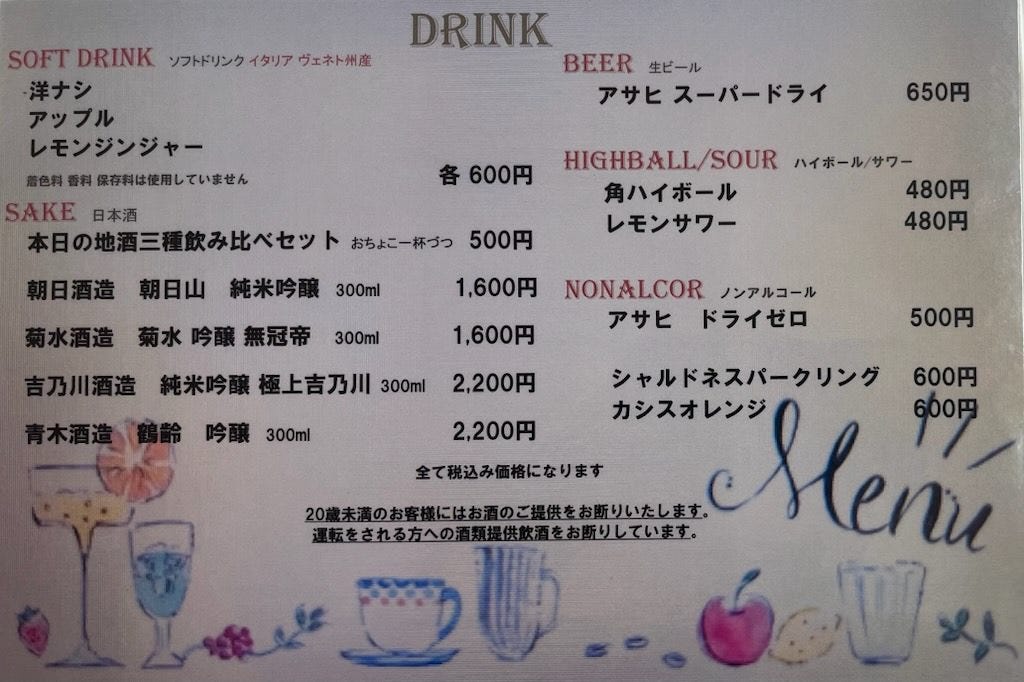 DRINK
SOFT DRINK ソフトドリンク イタリア ヴェネト州産
洋ナシ
アップル
レモンジンジャー
着色料 香料 保存料は使用していません 各 600円
SAKE 日本酒
本日の地酒三種飲み比べセット おちょこ一杯づつ 500円
朝日酒造 朝日山 純米吟醸 300ml 1,600円
菊水酒造 菊水 吟醸 無冠帝 300ml 1,600円
吉乃川酒造 純米吟醸 極上吉乃川 300ml 2,200円
青木酒造 鶴齢 吟醸 300ml 2,200円
BEER 生ビール
アサヒ スーパードライ 650円
HIGHBALL/SOUR ハイボール/サワー
角ハイボール 480円
レモンサワー 480円
NONALCOR ノンアルコール
アサヒ ドライゼロ 500円
シャルドネスパークリング 600円
カシスオレンジ 600円
全て税込み価格になります
20歳未満のお客様にはお酒のご提供をお断りいたします。
運転をされる方への酒類提供飲酒をお断りしています。
Menu